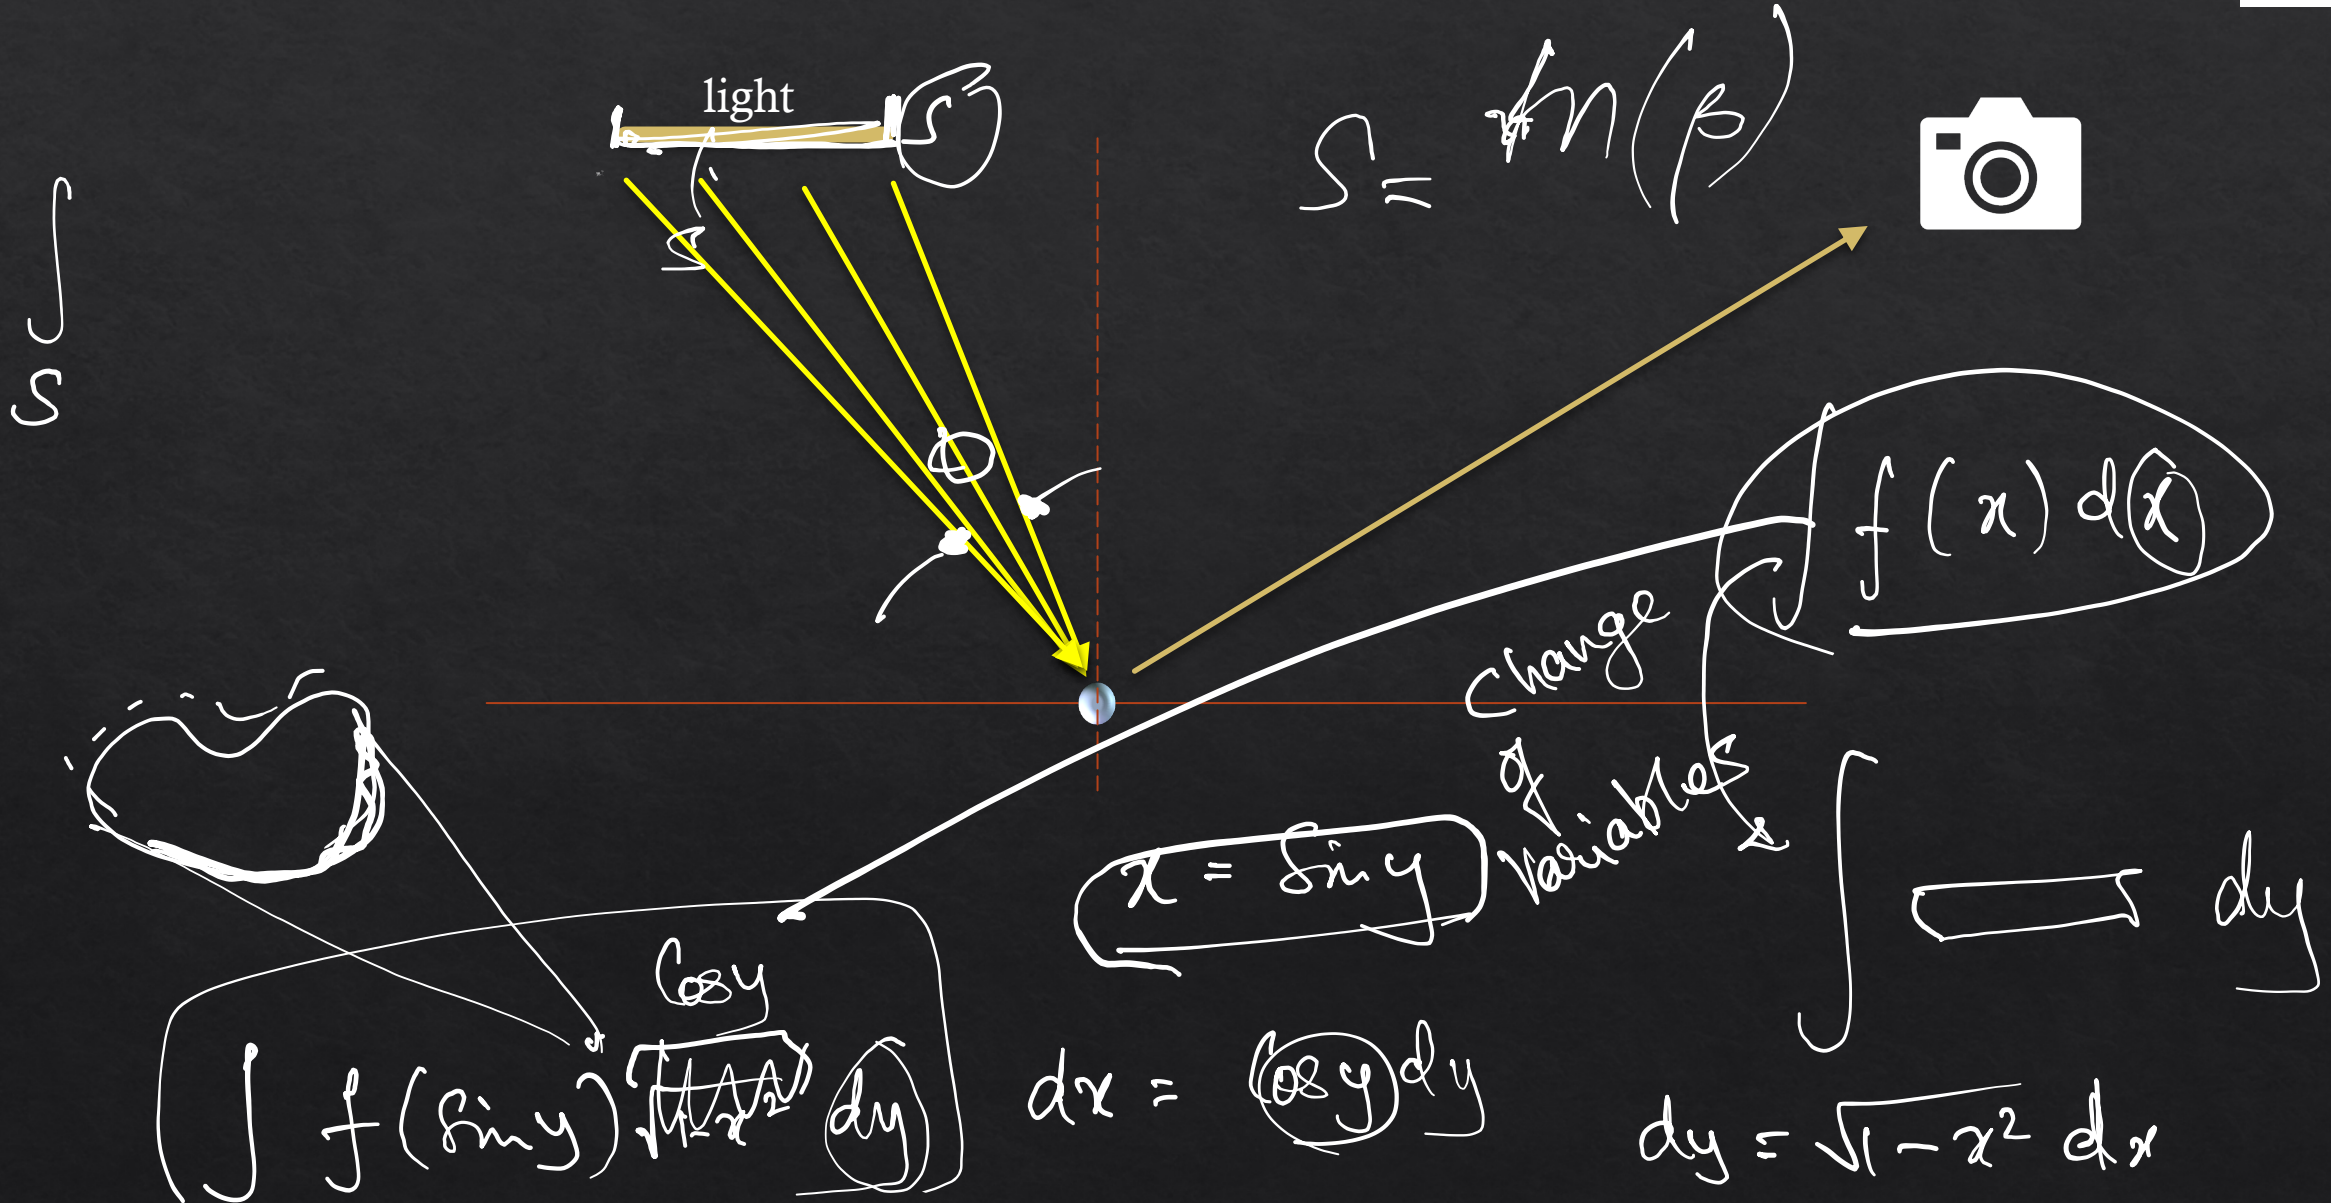 light
S
S = sin(β)
∫
S
S
∫ f(x) dx
change
of
variables
x = sin y
∫ dy
cos y
∫ f(sin y) √1-x² dy
dx = cos y dy
dy = √1-x² dx